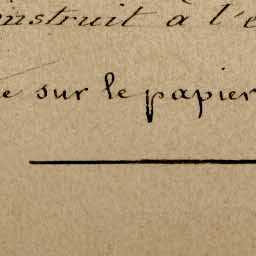 onstruit à l'e
e sur le papier